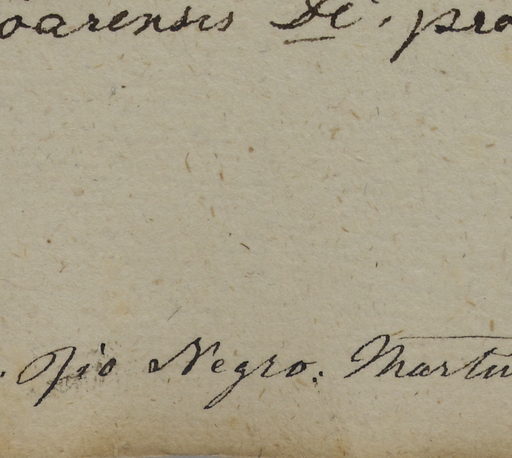 oarensis DC. pro
. Rio Negro. Martiu